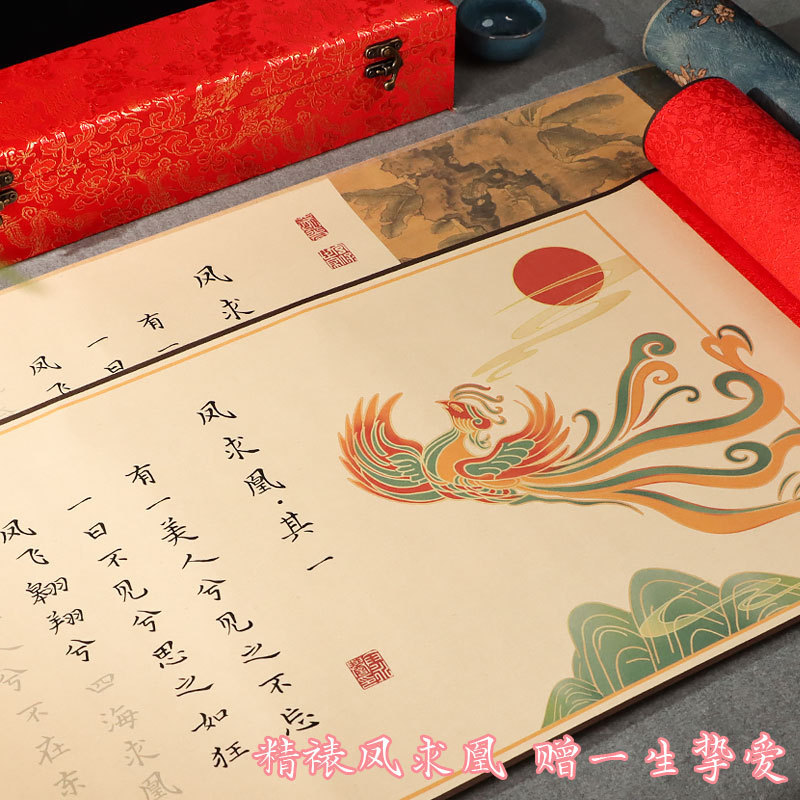 凤求
有一
一日
凤飞
凤求凰·其一
有一美人兮见之不忘
一日不见兮思之如狂
凤飞翱翔兮 四海求凰
人兮不在东
精裱凤求凰 赠一生挚爱